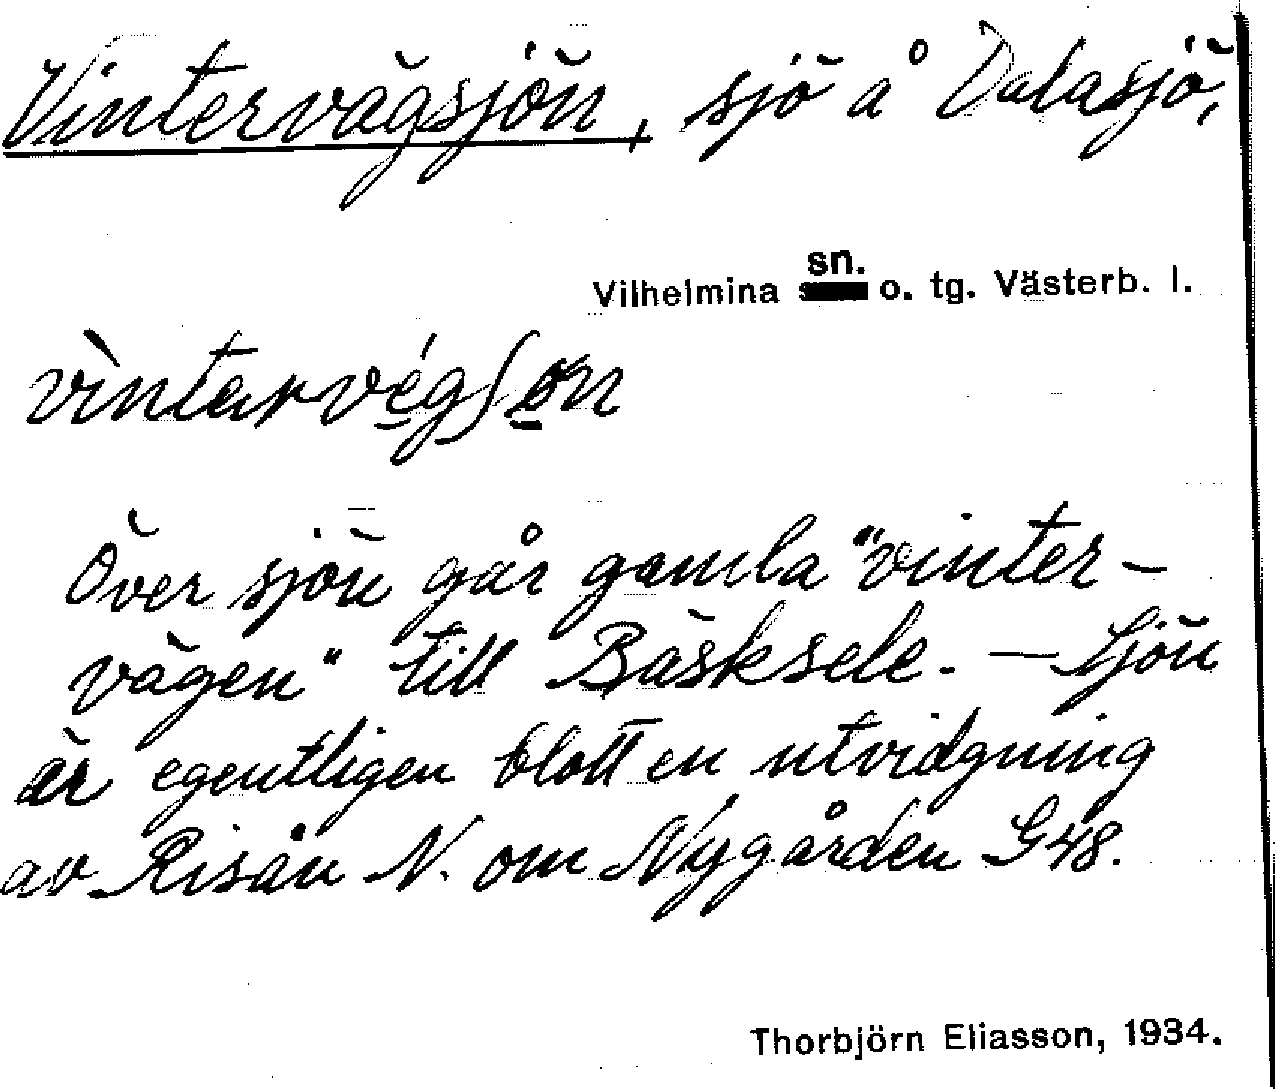 Vintervägsjön, sjö å Dalasjö,
Vilhelmina sn. o. tg. Västerb. l.
Över sjön går gamla "vinter-
vägen" till Bäsksele. — Sjön
är egentligen blott en utvidgning
av Risån N. om Nygården G48.
Thorbjörn Eliasson, 1934.